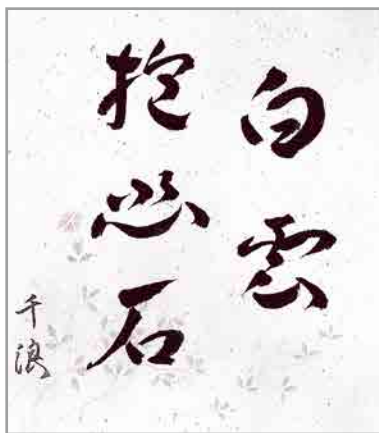 白雲
抱幽石
千浪